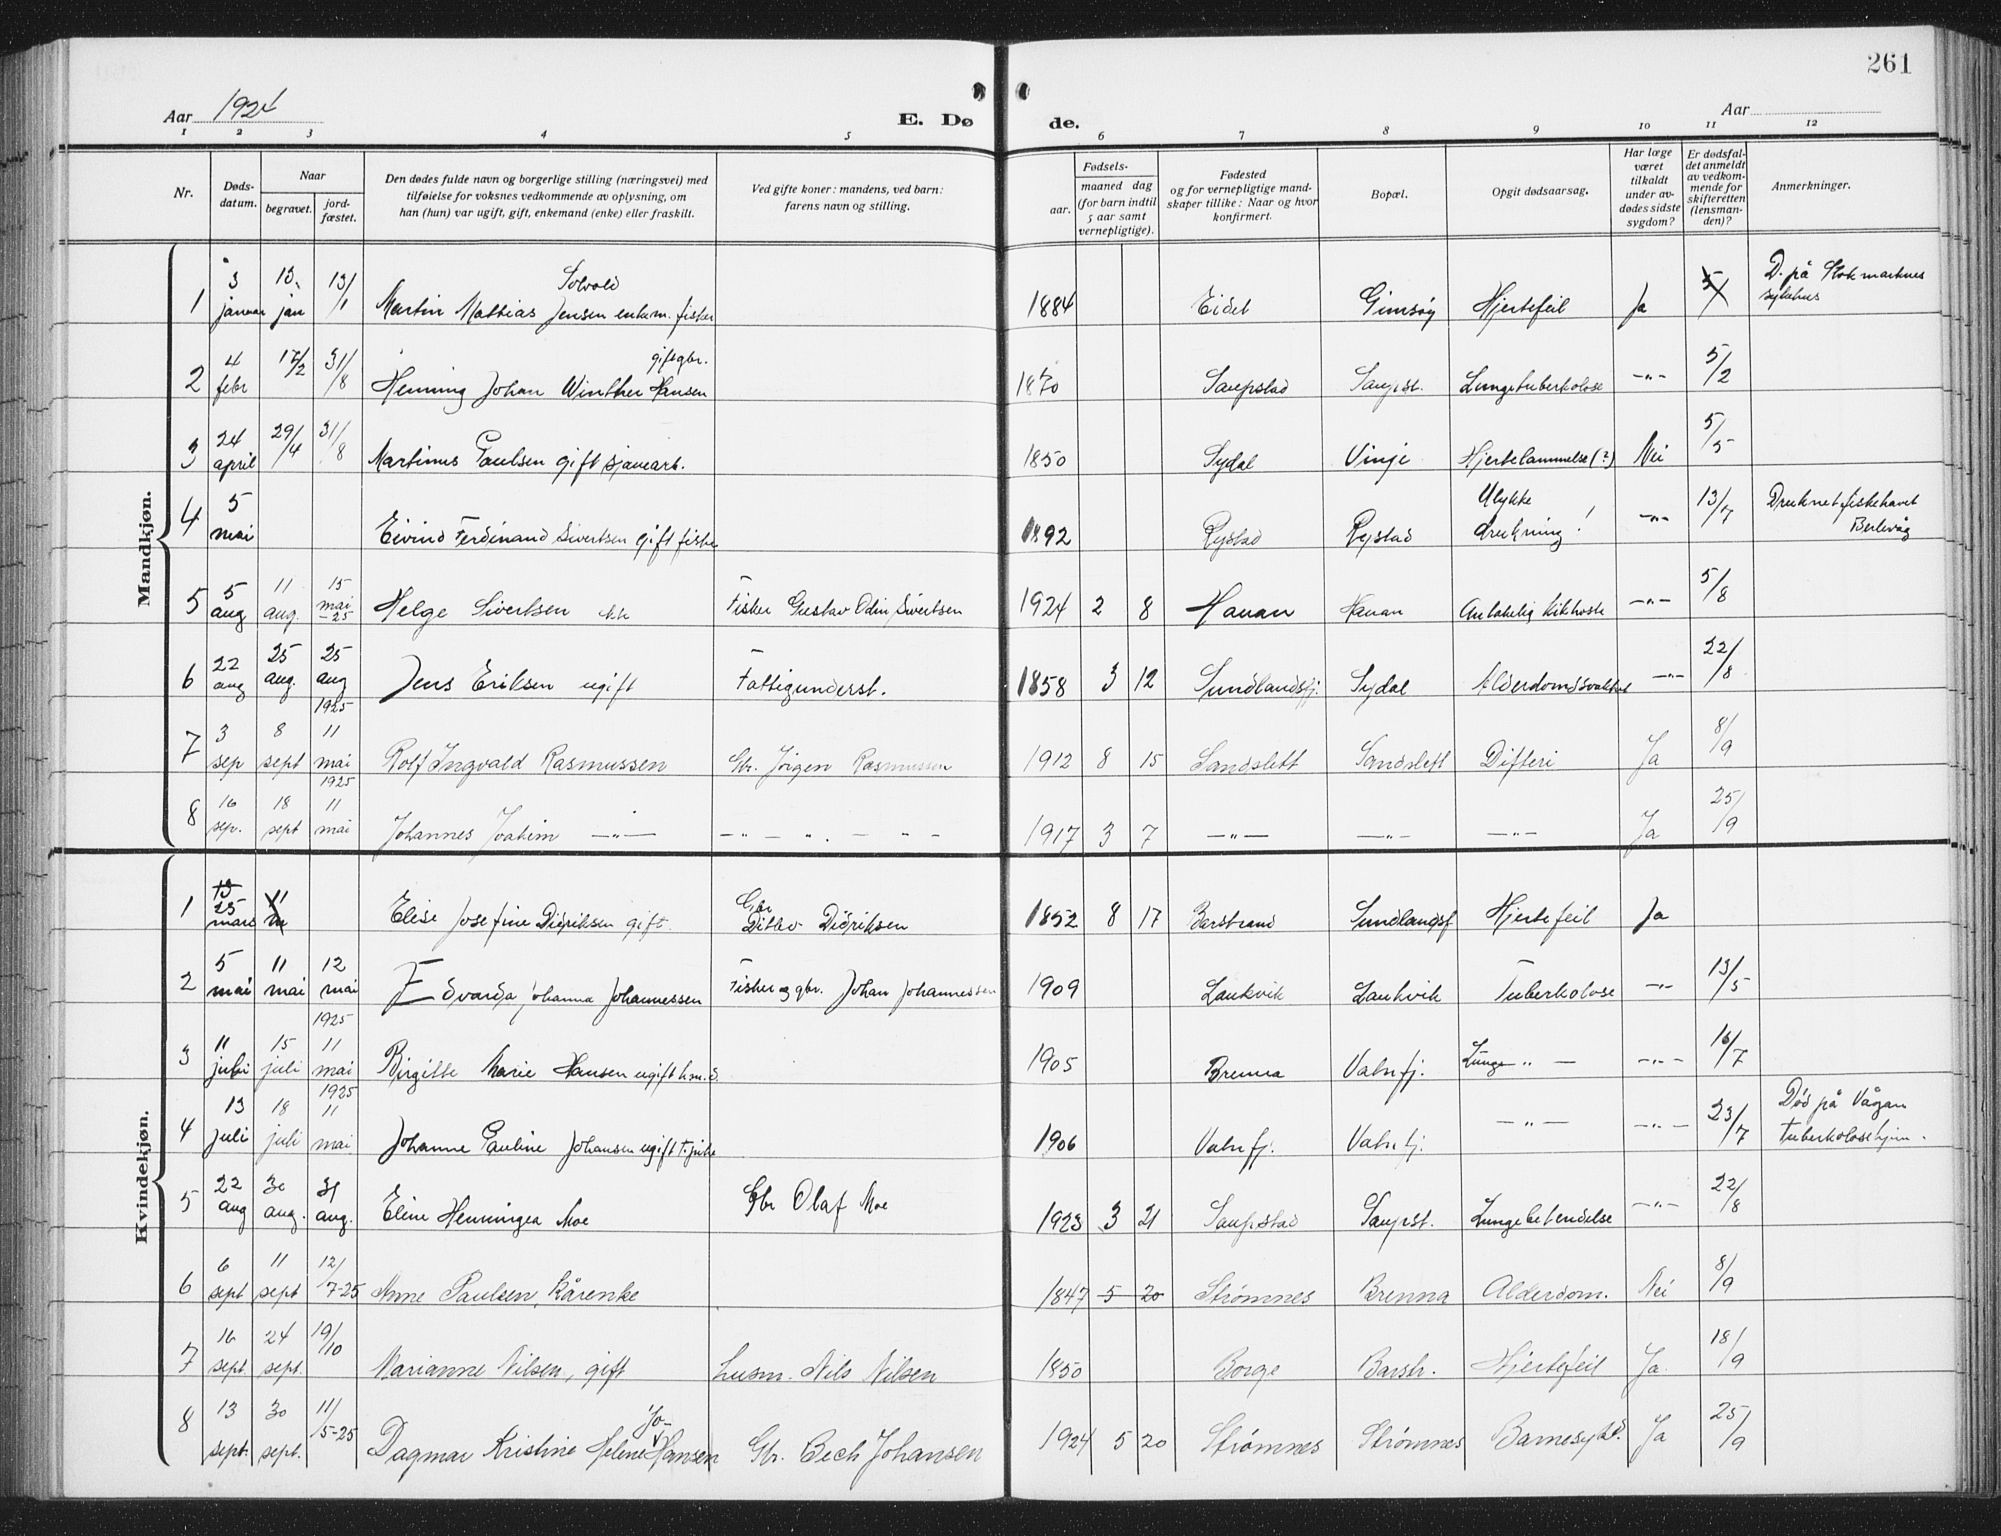 261
Aar 1924
E. Dø de.
Aar
1 2 3 4 5 6 7 8 9 10 11 12
Nr.
Døds-
datum.
Naar
begravet.
jord-
fæstet.
Den dødes fulde navn og borgerlige stilling (næringsvei) med
tilføielse for voksnes vedkommende av oplysning, om
han (hun) var ugift, gift, enkemand (enke) eller fraskilt.
Ved gifte koner: mandens, ved barn:
farens navn og stilling.
Fødsels-
aar.
maaned dag
(for barn indtil
5 aar samt
vernepligtige).
Fødested
og for vernepligtige mand-
skaper tillike: Naar og hvor
konfirmert.
Bopæl.
Opgit dødsaarsag.
Har læge
været
tilkaldt
under av-
dødes sidste
sygdom?
Er dødsfal-
det anmeldt
av vedkom-
mende for
skifteretten
(lensman-
den)?
Anmerkninger.
Mandkjøn.
1 3 januar 13. jan 13/1 Martin Mathias Jensen Solvold enkem. fisker 1884 Eidet Gimsøy Hjertefeil Ja D. på Stokmarknes sykehus
2 4 febr 17/2 31/8 Henning Johan Winther Hansen gift gbr. 1870 Saupstad Saupst. Lungetuberkolose -"- 5/2
3 24 april 29/4 31/8 Martinus Paulsen gift sjauearb. 1850 Sydal Vinje Hjertelammelse (?) Nei 5/5
4 5 mai Eivind Ferdinand Sivertsen gift fisker 1892 Rystad Rystad Ulykke drukning! -"- 13/7 Druknet fiskehavet Berlevåg
5 5 aug 11 aug. 15 mai -25 Helge Sivertsen Fisker Gustav Odin Sivertsen 1924 2 8 Hauan Hauan Antakelig kikhoste -"- 5/8
6 22 aug 25 aug. 25 aug Jens Eriksen ugift Fattigunderst. 1858 3 12 Sundlandsfj. Sydal -"- 22/8
7 3 sep 8 sept 11 mai 1925 Rolf Ingvald Rasmussen Gbr. Jørgen Rasmussen 1912 8 15 Sandslett Sandslett Difteri Ja 8/9
8 16 sep. 18 sept 11 mai 1925 Johannes Joakim -"- -"- 1917 3 7 -"- -"- -"- Ja 25/9
Kvindekjøn.
1 25 mars Elise Josefine Didriksen gift. Gbr Ditlev Didriksen 1852 8 17 Barstrand Sundlandsf Hjertefeil Ja
2 5 mai 11 mai 12 mai Edvarda Johanna Johannessen Fisker og gbr. Johan Johannessen 1909 Laukvik Laukvik Tuberkolose -"- 13/5
3 11 juli 15 juli 11 mai 1925 Birgitte Marie Hansen ugift 1905 Brenna Vatnfj. Lunge -"- -"- 16/7
4 13 juli 18 juli 11 mai 1925 Johanne Pauline Johansen ugift 1906 Vatnfj. Vatnfj. -"- -"- 23/7 Død på Vågan Tuberkolosehjem.
5 22 aug 30 aug. 31 aug. Eline Henningea Moe Gbr Olaf Moe 1923 3 21 Saupstad Saupst. Lungebetendelse -"- 22/8
6 6 sept 11 sept 12/7-25 Anne Paulsen, kårenke 1847 5 20 Strømnes Brenna Alderdom. Nei 8/9
7 16 sept. 24 sept. 19/10 Marianne Nilsen, gift husm. Nils Nilsen 1850 Borge Barstr. Hjertefeil Ja. 18/9
8 13 sept. 30 sept. 11/5-25 Dagmar Kristine Helene Jo-Hansen Gbr. Bech Johansen 1924 5 20 Strømnes Strømnes Ja 25/9